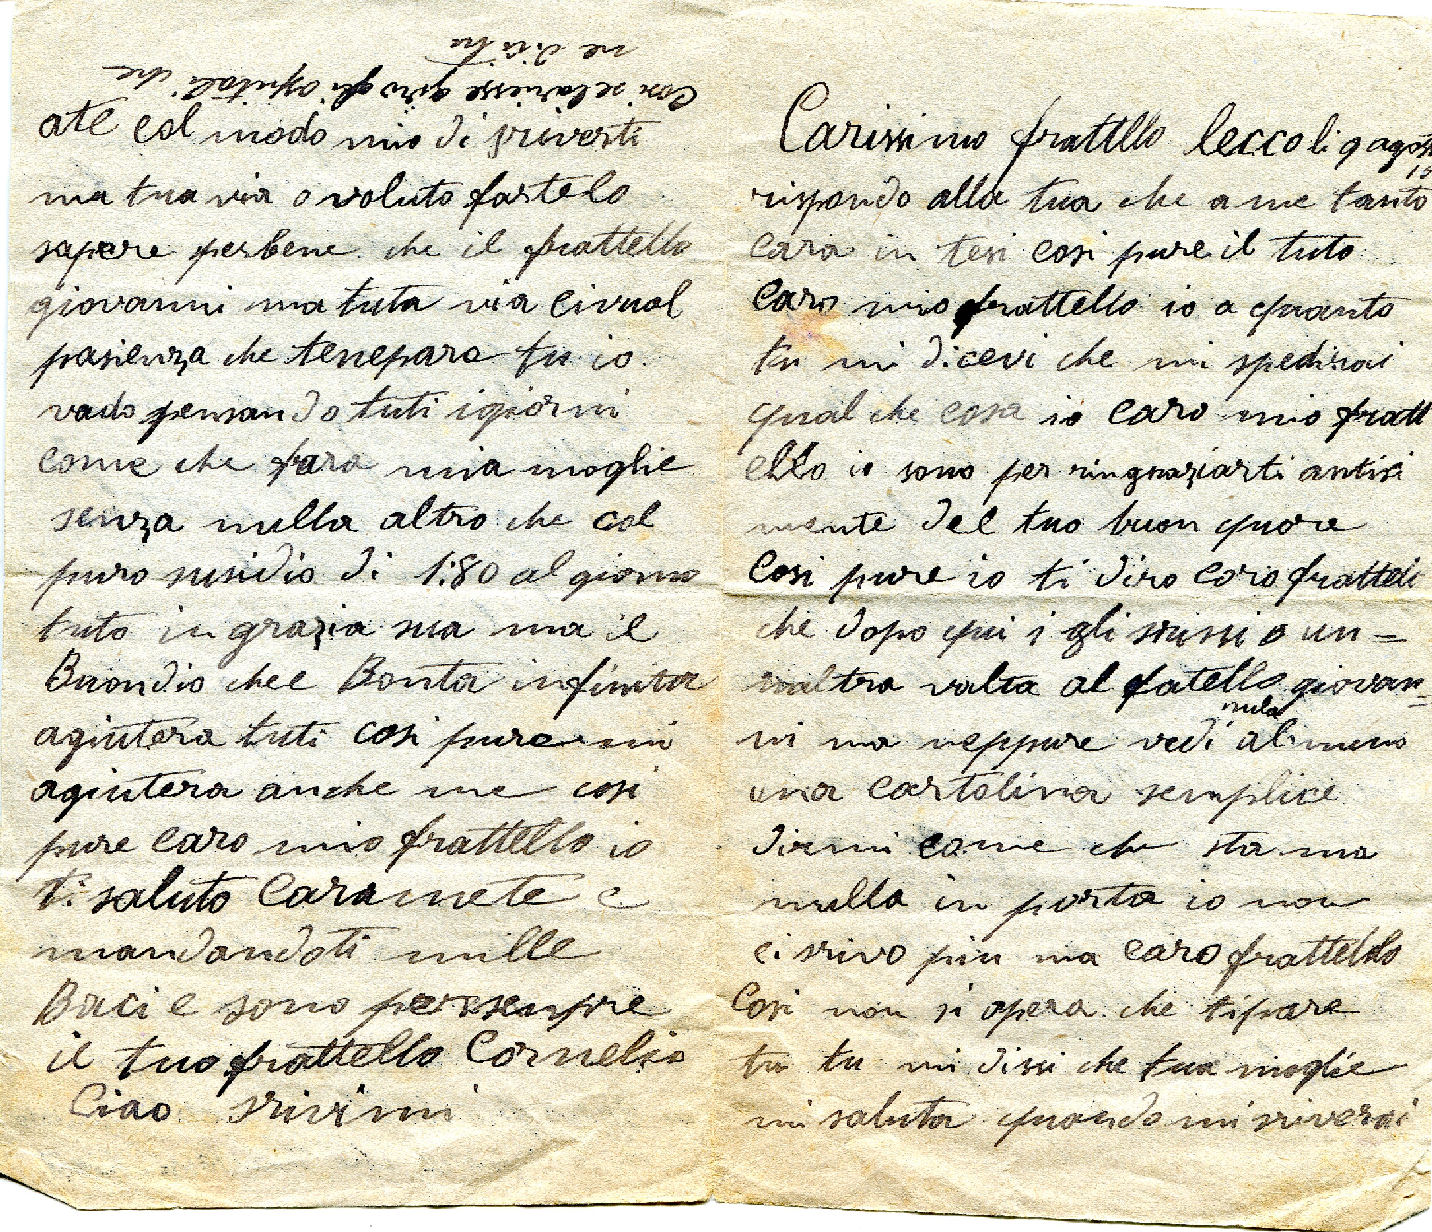 Carissimo frattello lecco li 9 agosto
15
rispondo alla tua che a me tanto
cara in tesi cosi pure il tuto
Caro mio frattello io a quanto
tu mi dicevi che mi spedirai
qual che cosa io caro mio fratt
ello io sono per ringraziarti antisi
mente del tuo buon quore
Cosi pure io ti diro caro frattelo
che dopo qui i gli scrissi o un=
naltra volta al fatello giovan=
ni ma neppure vedi nula al meno
una cartolina semplice
dirmi come che sta ma
nulla in porta io non
ci srivo piu ma caro frattello
Cosi non si opera che ti pare
tu tu mi dissi che tua moglie
mi saluta quando mi sriverai
ate col modo mio di sriverti
ma tua via o voluto fartelo
sapere perbene che il frattello
giovanni ma tuta via ci vuol
pasienza che tenepara tu io
vado pensando tuti i giorni
come che fara mia moglie
senza nulla altro che col
puro susidio di 1:80 al giorno
tuto in grazia sua ma il
Buon dio che e Bonta infinita
agiutera tuti cosi pure mi
agiutera anche me cosi
pure caro mio frattello io
Ti saluto Caramete e
mandandoti mille
Baci e sono per sempre
il tuo frattello Cornelio
Ciao srivimi
Cosi se la visse giro gli ospitali che
ne dici tu